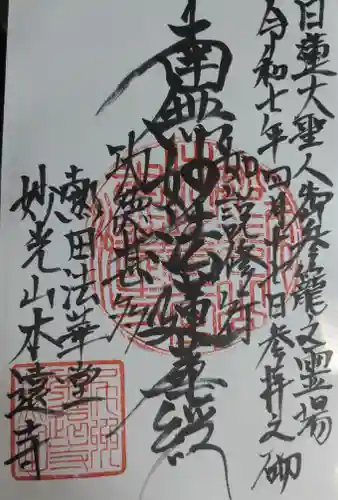 日蓮大聖人御参籠之霊場
令和七年四月十七日参拝之砌
如説修行
南無妙法蓮華経
功徳甚多
瀬田法華堂
妙光山本遠寺